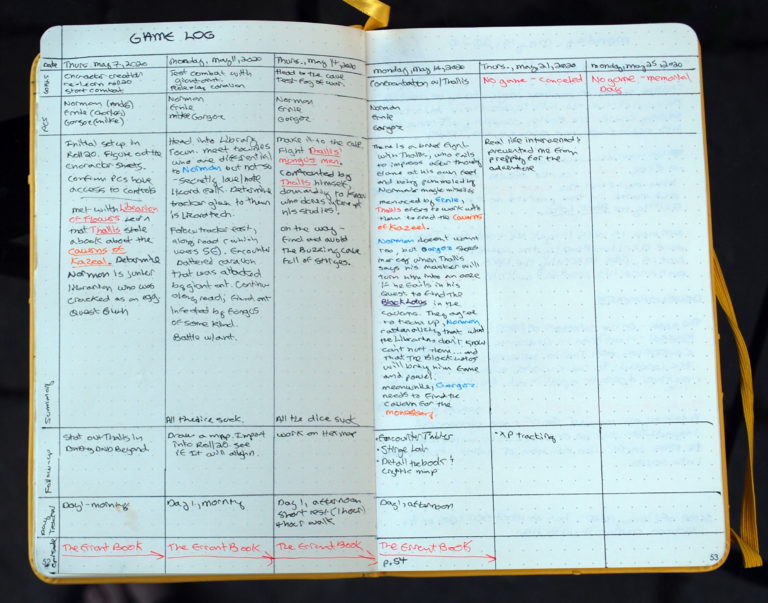 GAME LOG
Date
Thurs. May 7, 2020
Monday, May 11, 2020
Thurs., May 14, 2020
Monday, May 18, 2020
Thurs., May 21, 2020
Monday, May 25, 2020
Goals
Character creation
re-learn roll20
start combat
Test combat with
giant ant.
Role-play caravan
Head to the cave
Test fog of war.
Confrontation w/ Thallis
No game - canceled
No game - memorial
Day
PCs
Norman (Andy)
Ernie (
Gorgoz (Mike)
Norman
Ernie
Mike Gorgoz
Norman
Ernie
Gorgoz
Norman
Ernie
Gorgoz
Summary
Initial setup in
Roll20. Figure out the
character sheets.
Confirm PCs have
access to controls
met with Librarian
of Flowers. Learn
that Thallis stole
a book about the
Caverns of
Kazeal. Determine
Norman is junior
librarian who was
cracked as an egg.
Quest Given
Head into Library
Town. meet
who are deferential
to Norman but not so
- secretly love/hate
lizard folk. Determine
tracker given to them
is
Follow tracker east,
along road (which
was SE). Encounter
battered caravan
that was attacked
by giant ant. Continue
along road, find ant
infected by fungus
of some kind.
Battle w/ant.
All the dice suck.
Make it to the cave
Fight Thallis'
mongrel men.
Confronted by
Thallis himself,
demanding to know
who dares interrupt
his studies!
on the way -
find and avoid
the Buzzing Cave
full of stirges.
All the dice suck
There is a brief fight
with Thallis, who fails
to impress after throwing
flame at his own feet
and being pummeled by
Norman's magic missiles
menaced by Ernie,
Thallis offers to work with
them to find the Caverns
of Kazeel.
Norman doesn't want
to, but Gorgoz
when Thallis
says his master will
turn him into an ooze
if he fails in his
Quest to find the
Black Lotus in the
caverns. They agreed
to team up, Norman
rationalizing that what
the Librarians don't know
can't hurt them... and
that the Black Lotus
will bring him fame
and power.
meanwhile, Gorgoz
needs to find the
cavern for the
monastery.
Real life intervened &
prevented me from
prepping for the
adventure
Follow-up
Stat out Thallis in
DnD Beyond
Draw a map. Import
into Roll20 see
if it will align.
work on Hex map
• Encounter Tables
• Stirge Lair
• Detail the book &
cryptic map
• XP tracking
Day 1 - morning
Day 1, morning
Day 1, afternoon
Short rest (1 hour)
4 hour walk
Day 1, afternoon
The Errant Book
The Errant Book
The Errant Book
The Errant Book
p. 54
53